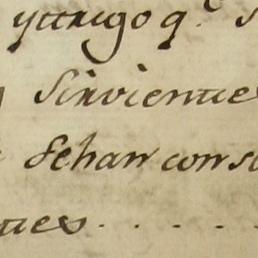 yttrigo q.e s
Sirvientes
Sehan cons
ttes . . . . .